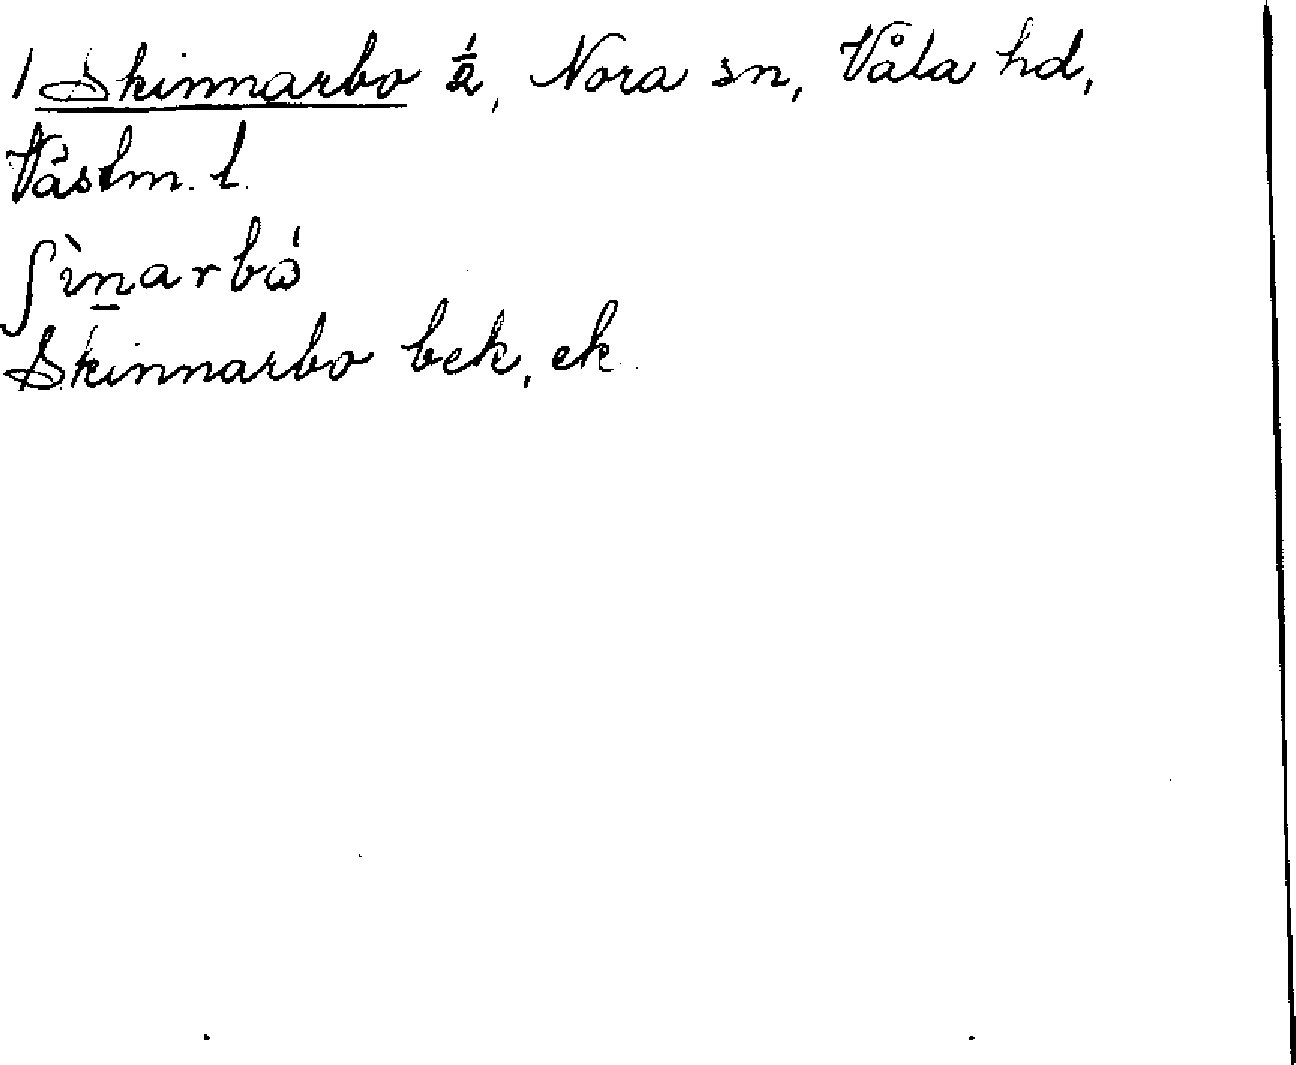 1 Skinnarbo 1/2, Nora sn, Våla hd,
Västm. l.
ʃìn̠arbώ
Skinnarbo bek, ek.